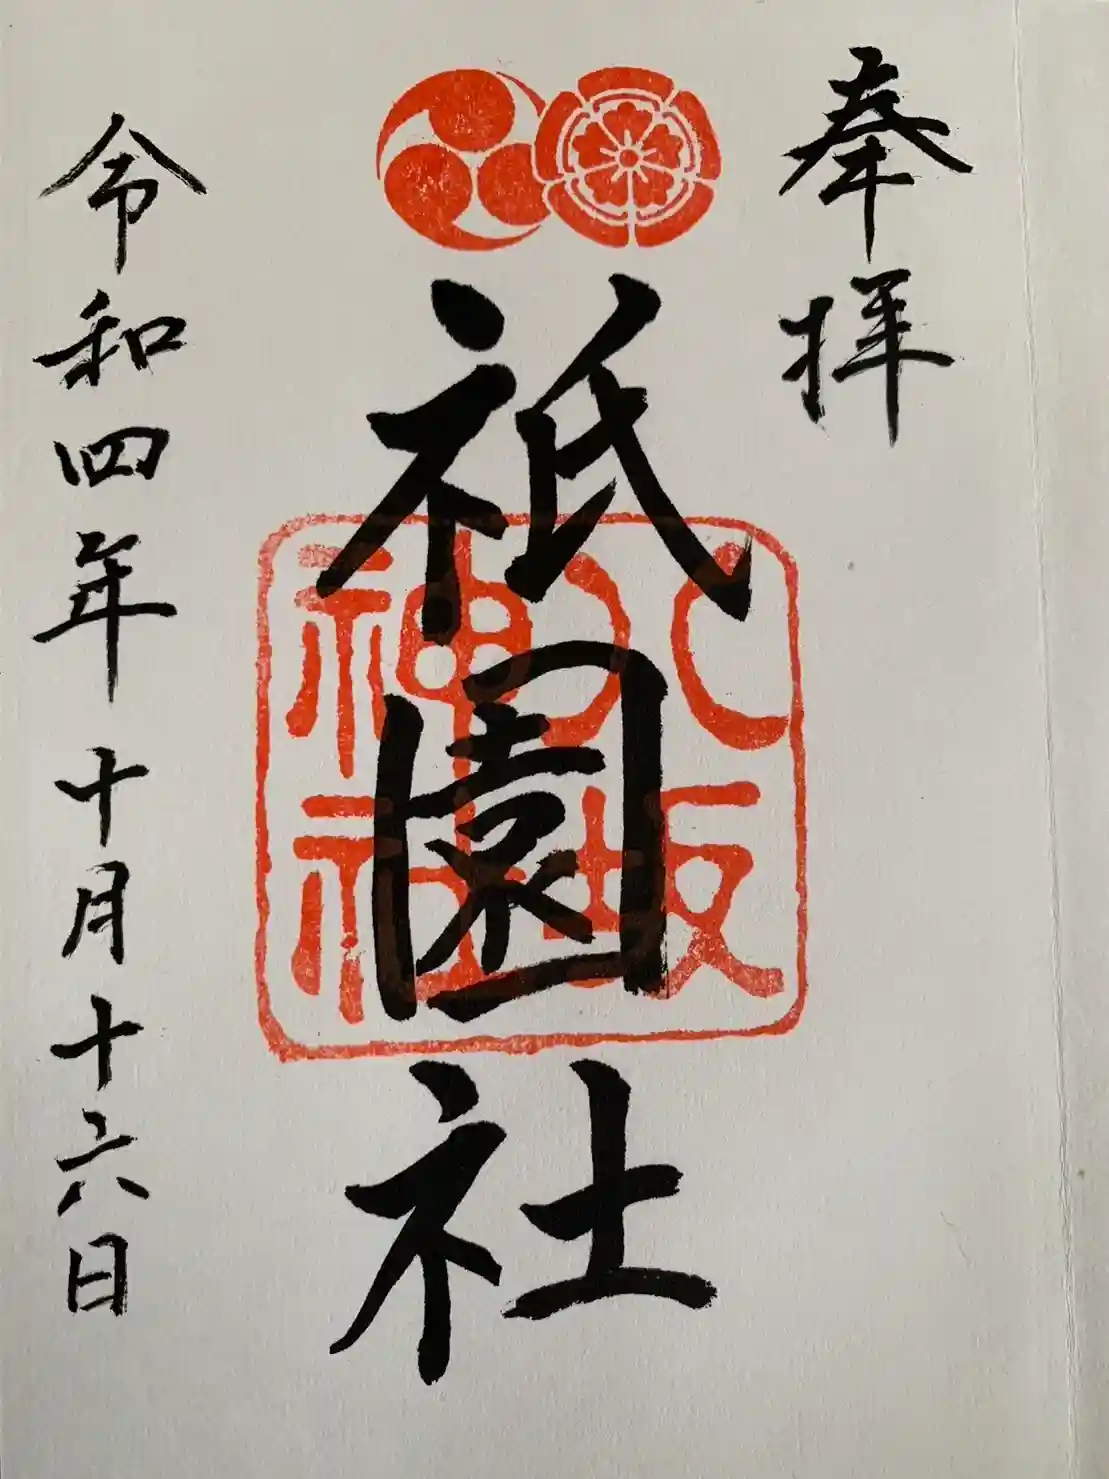 奉拝
祇園社
八坂
神社
令和四年十月十六日